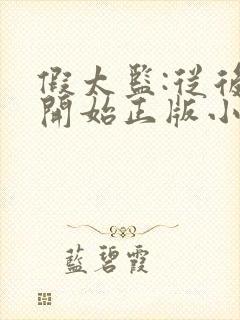 假太監:從後
開始正版小
藍碧霞